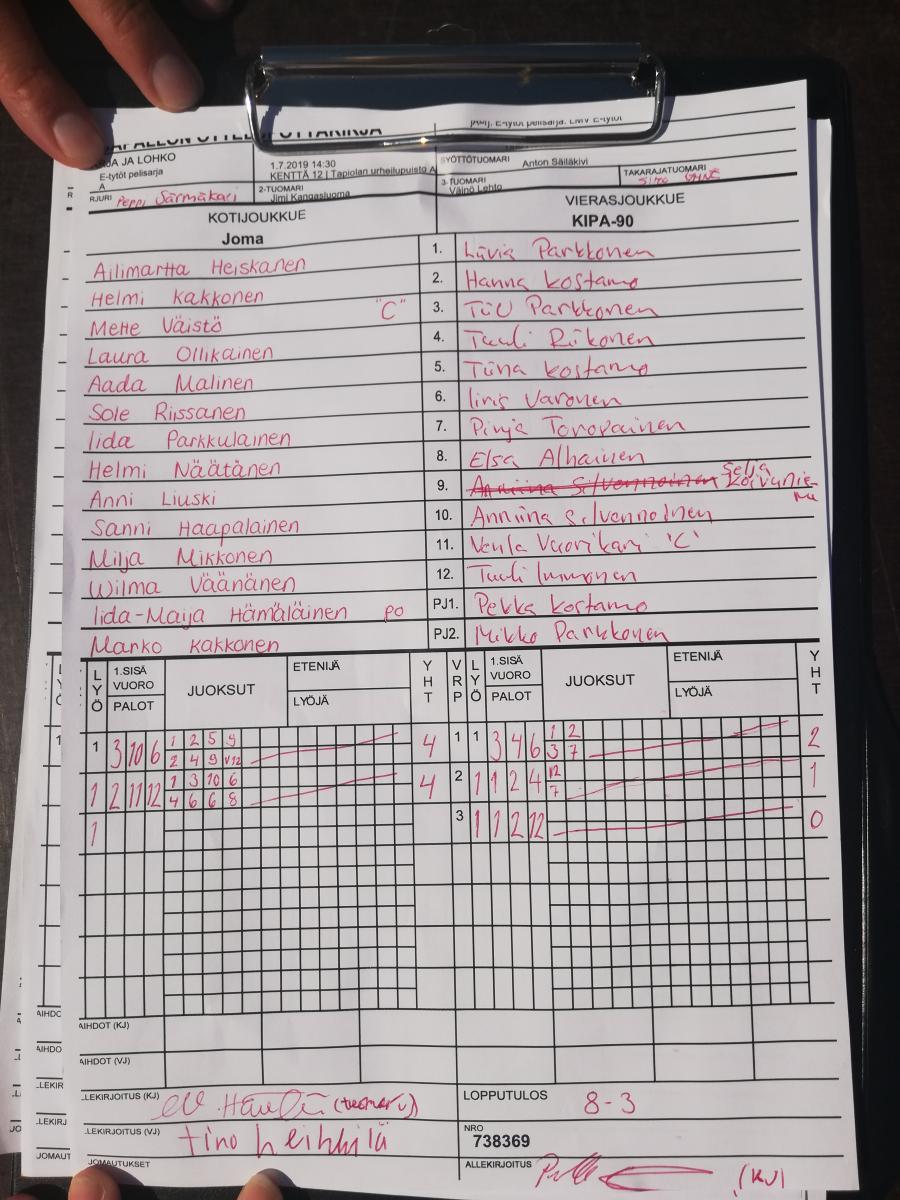 E-tytöt pelisarja, LMV E-tytöt
JA LOHKO
E-tytöt pelisarja
A
1.7.2019 14:30
KENTTÄ 12 | Tapiolan urheilupuisto A
SYÖTTÖTUOMARI Anton Säiläkivi
RJURI Peppi Särmäkari
2-TUOMARI
Jimi Kangasluoma
3-TUOMARI
Väinö Lehto
TAKARAJATUOMARI
KOTIJOUKKUE
Joma
VIERASJOUKKUE
KIPA-90
Ailimartta Heiskanen 1. Livia Parkkonen
Helmi Kakkonen 2. Hanna Kostamo
Mette Väistö "C" 3. Tiu Parkkonen
Laura Ollikainen 4. Tuuli Riikonen
Aada Malinen 5. Tiina Kostamo
Sole Riissanen 6. Iiris Varonen
Iida Parkkulainen 7. Pinja Toropainen
Helmi Näätänen 8. Elsa Alhainen
Anni Liuski 9. Anniina Silvennoinen Selja Koivunie-
mi
Sanni Haapalainen 10. Anniina Silvennoinen
Milja Mikkonen 11. Venla Vuorikari 'C'
Wilma Väänänen 12. Tuuli Immonen
Iida-Maija Hämäläinen po PJ1. Pekka Kostamo
Marko Kakkonen PJ2. Mikko Parkkonen
LYÖ 1.SISÄ VUORO PALOT JUOKSUT ETENIJÄ LYÖJÄ YHT VRP LYÖ 1.SISÄ VUORO PALOT JUOKSUT ETENIJÄ LYÖJÄ YHT
1 3 10 6 1 2 5 9 4 1 1 3 4 6 1 2 2
2 4 9 V12 3 7
1 2 11 12 1 3 10 6 4 2 1 1 2 4 12 1
4 6 6 8 7
1 3 1 1 2 12 0
AIHDOT (KJ)
AIHDOT (VJ)
LEKIRJOITUS (KJ) (tuomari)
LOPPUTULOS 8-3
LEKIRJOITUS (VJ) Tino Heikkilä
NRO
738369
JOMAUTUKSET
ALLEKIRJOITUS (KJ)